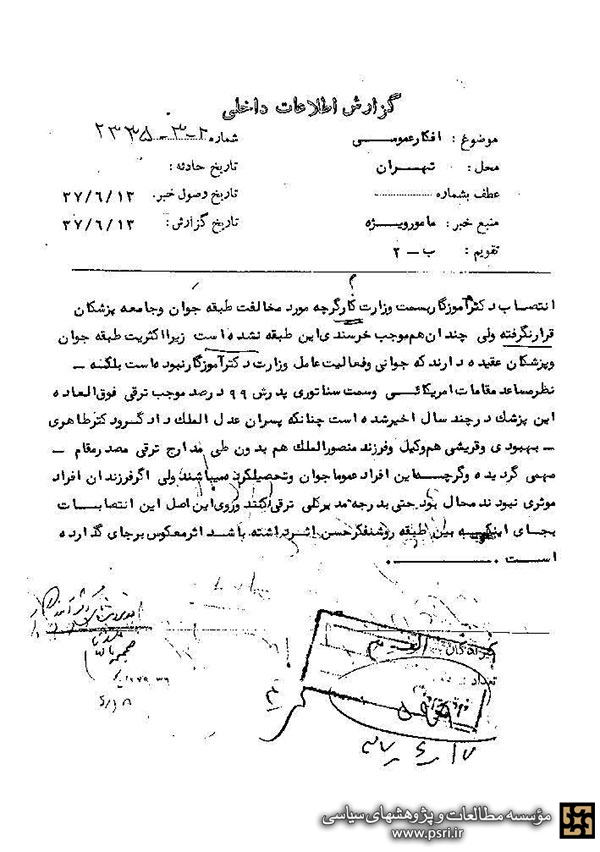 گزارش اطلاعات داخلی
موضوع : افکار عمومی
شماره
محل : تهران
تاریخ حادثه :
عطف بشماره
تاریخ وصول خبر. ۳۷/۶/۱۳
منبع خبر : مامور ویژه
تاریخ گزارش : ۳۷/۶/۱۳
تقویم : ب - ۲
انتصاب دکتر آموزگار بسمت وزارت کار گرچه مورد مخالفت طبقه جوان و جامعه پزشکان
قرار نگرفته ولی چندان هم موجب خرسندی این طبقه نشده است زیرا اکثریت طبقه جوان
و پزشکان عقیده دارند که جوانی و فعالیت عامل وزارت دکتر آموزگار نبوده است بلکه –
نظر مساعد مقامات امریکائی وسمت سناتوری پدرش ۹۹ درصد موجب ترقی فوق العاده
این پزشک در چند سال اخیر شده است چنانکه پسران عدل الملک دادگر و دکتر طاهری
– بهبودی و قریشی هم وکیل و فرزند منصورالملک هم بدون طی مدارج ترقی مصدر مقام –
مهمی گردیده و گرچه این افراد عموما جوان و تحصیلکرده میباشند ولی اگر فرزندان افراد
موثری نبودند محال بود حتی بدرجه مدیر کلی ترقی کنند و روی این اصل این انتصابات
بجای اینکه بین طبقه روشنفکر حسن اثر داشته باشد اثر معکوس برجای گذارده
است
تعداد
۳۷/۶/۱۷
مؤسسه مطالعات و پژوهشهای سیاسی
www.psri.ir